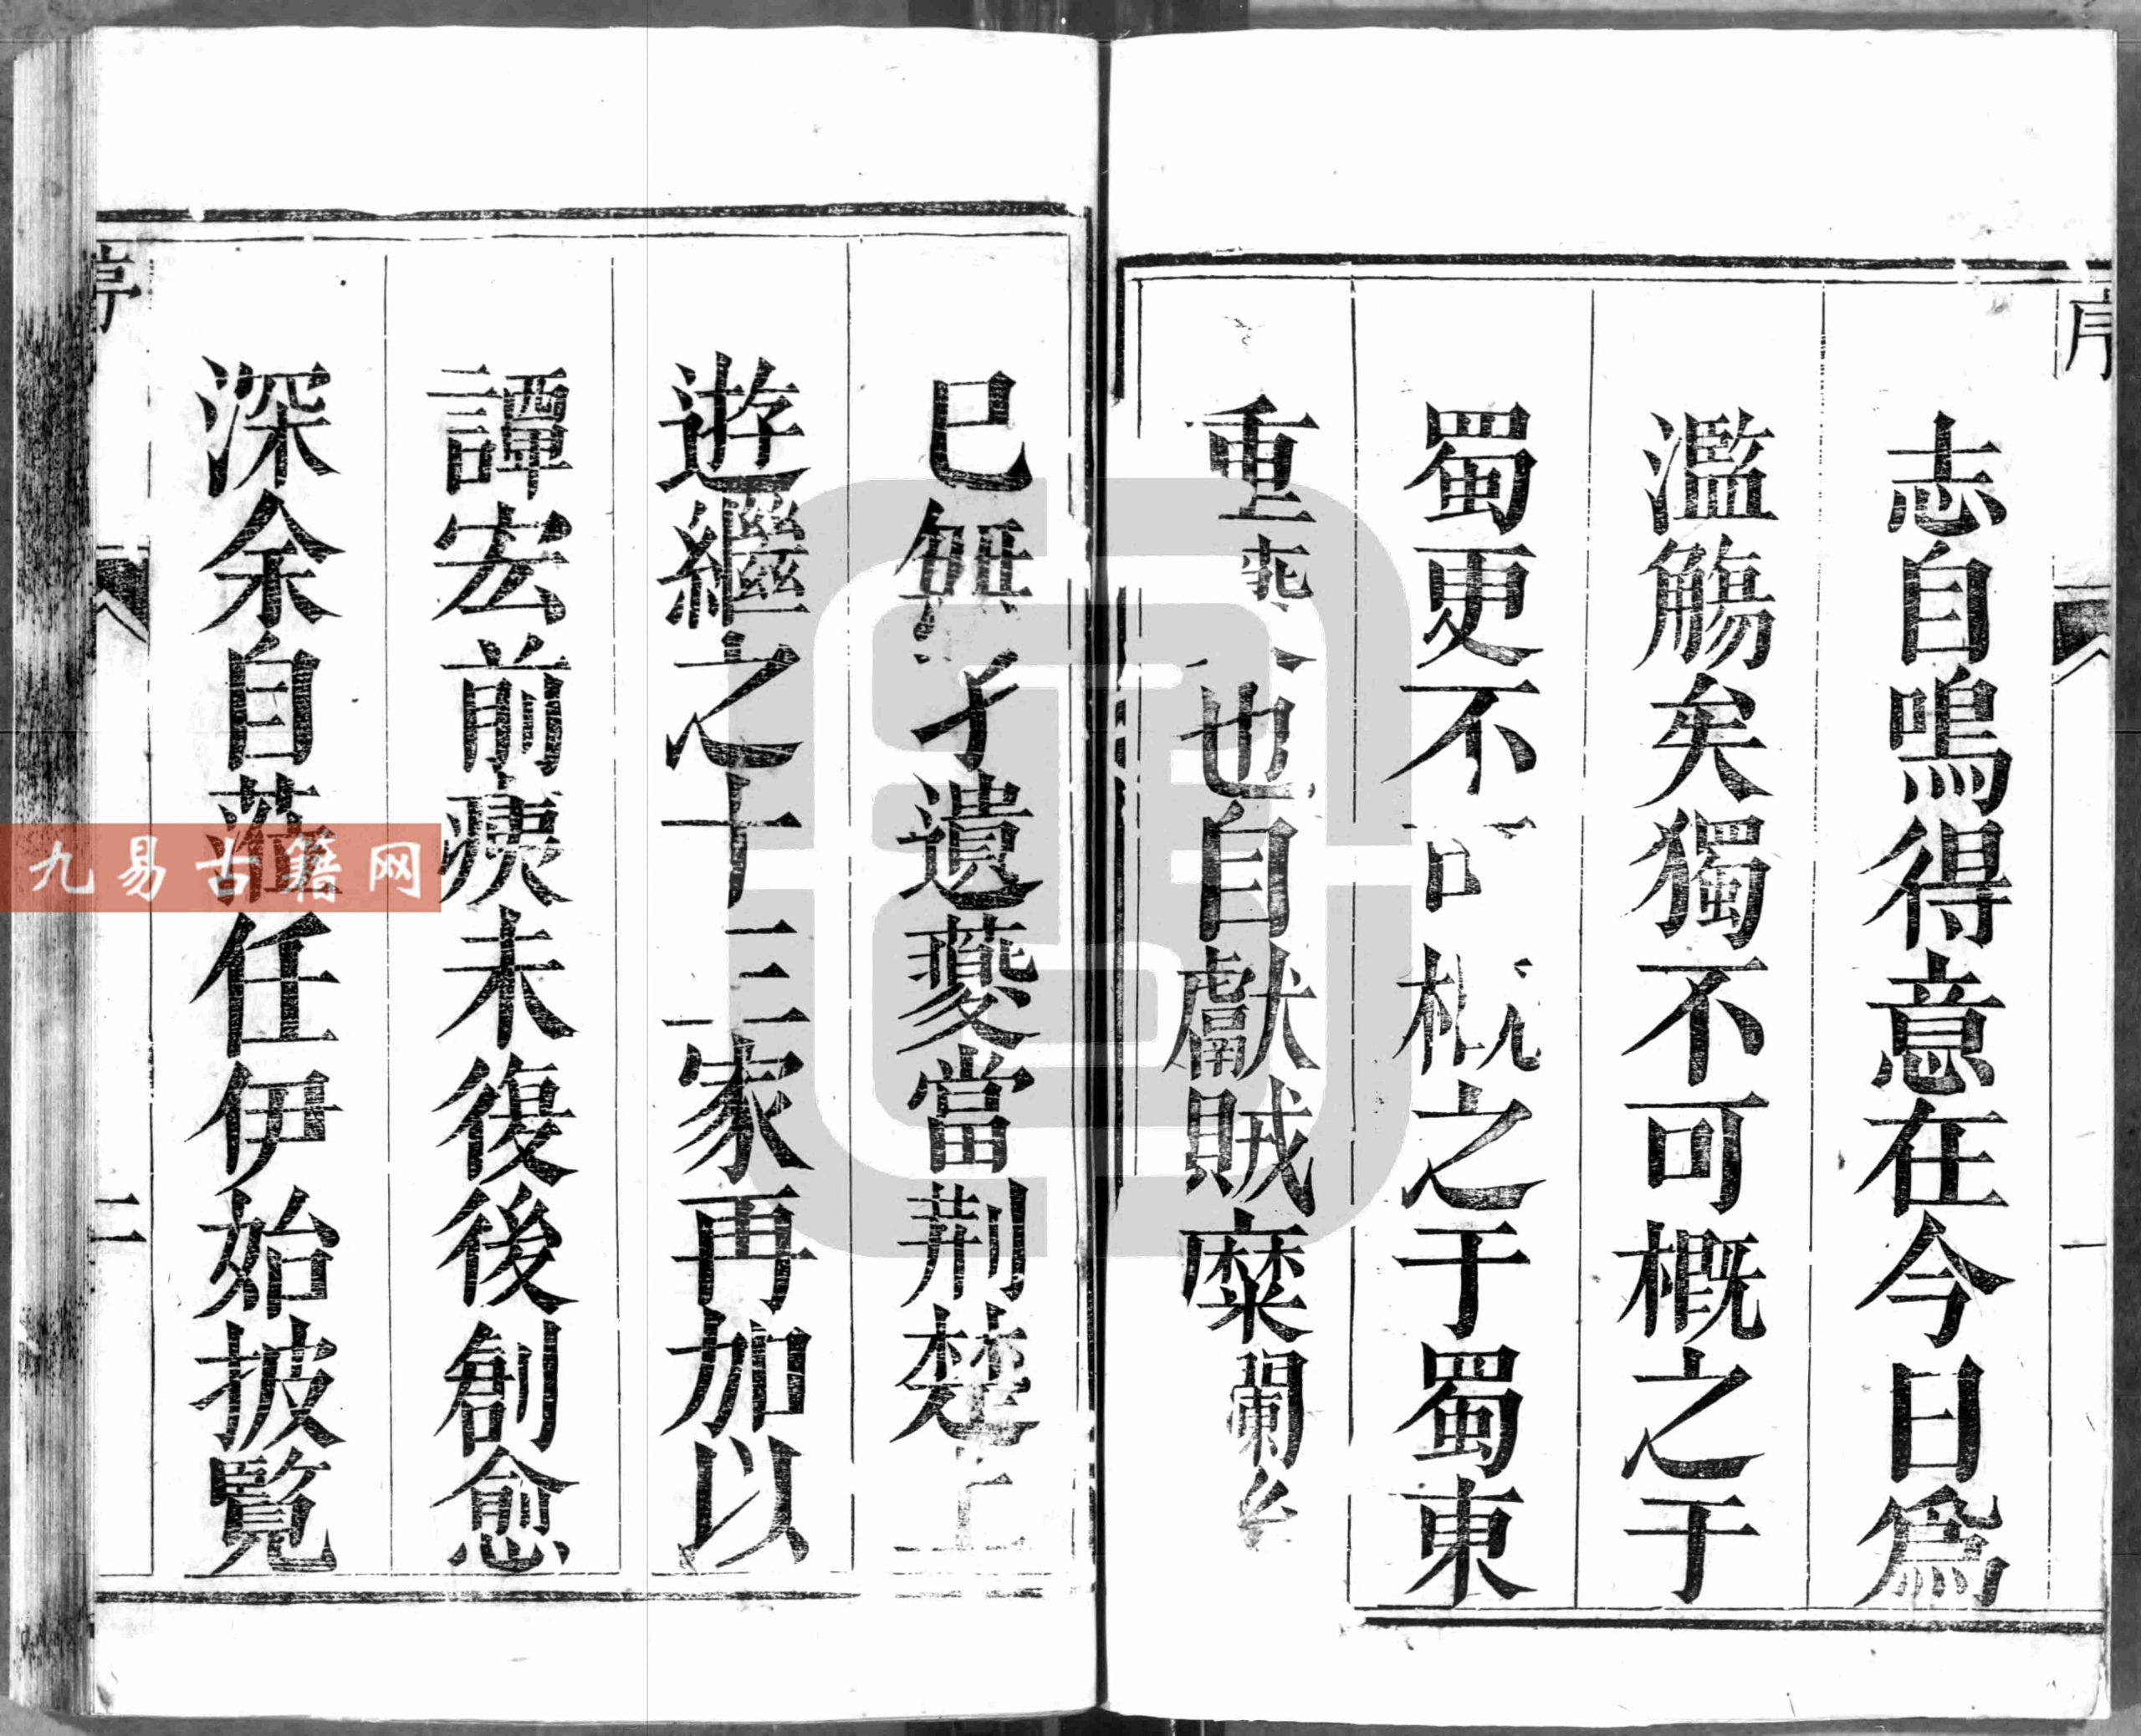 序
一
志自鳴得意在今日爲
濫觴矣獨不可概之于
蜀更不可概之于蜀東
重夔也自獻賊糜闌
已無孑遺夔當荆楚上
遊繼之十三家再加以
譚宏前痍未復後創愈
深余自蒞任伊始披覽
序
二
九易古籍网